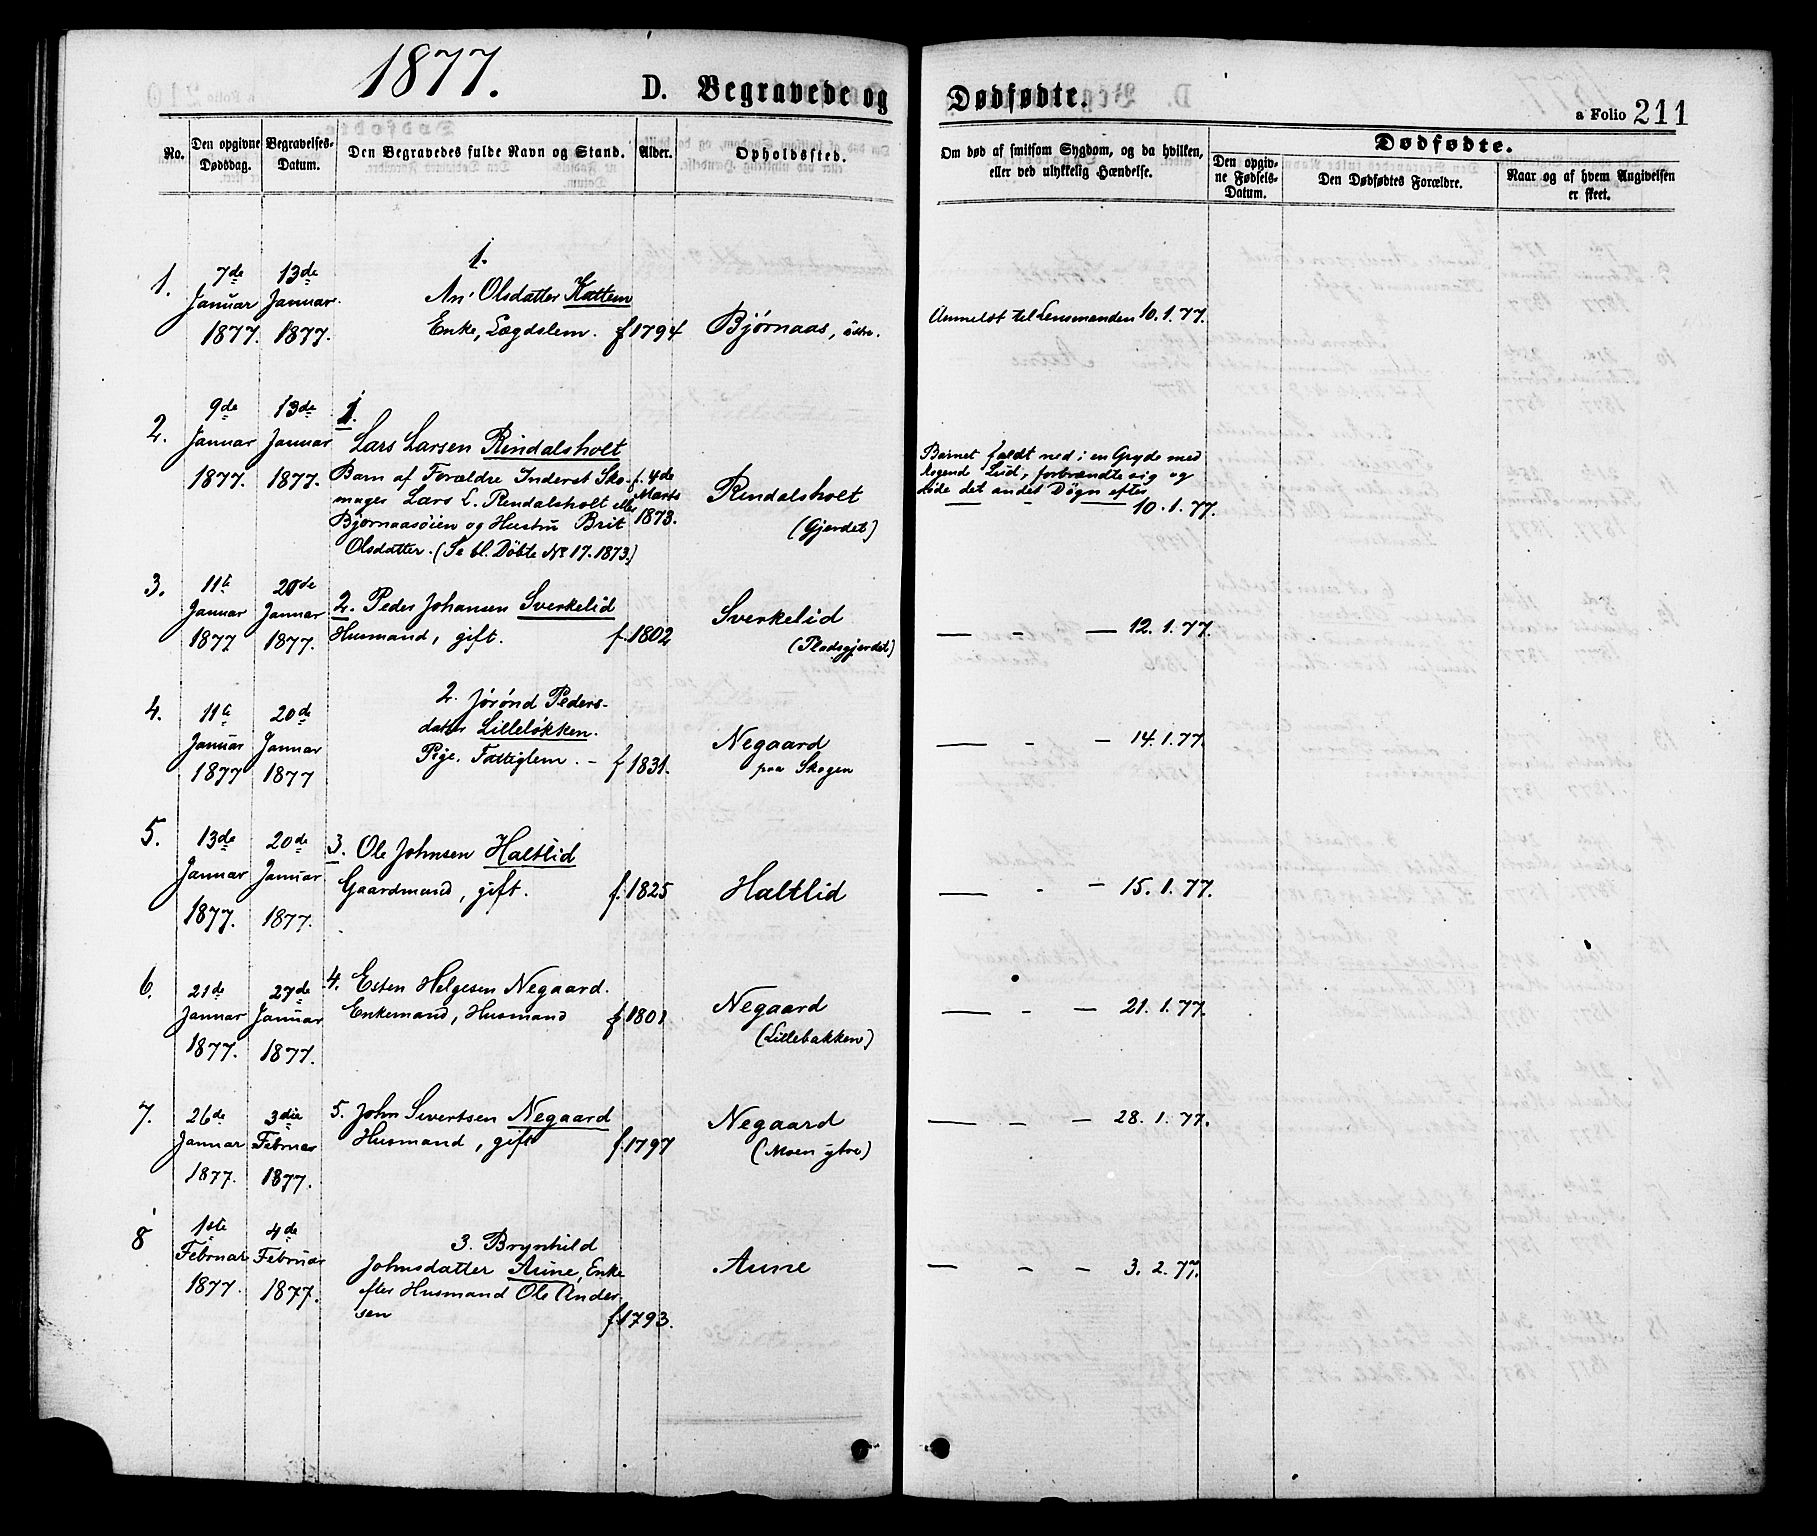 1877.
D. Begravede og Dødfødte.
a Folio 211
No.
Den opgivne Dødsdag.
Begravelses-Datum.
Den Begravedes fulde Navn og Stand.
Alder.
Opholdssted.
Om død af smitsom Sygdom, og da hvilken, eller ved ulykkelig Hændelse.
Dødfødte.
Den opgiv-ne Fødsels-Datum.
Den Dødfødtes Forældre.
Naar og af hvem Angivelsen er skeet.
1.
7de Januar 1877.
13de Januar 1877.
1.
An' Olsdatter Kattem
Enke, Lægdslem.
f 1794
Bjørnaas, østre.
Anmeldt til Lensmanden 10.1.77.
2.
9de Januar 1877.
13de Januar 1877.
1.
Lars Larsen Rindalsholt
Barn af Forældre Inderst Sko-
mager Lars L. Rindalsholt eller
Bjørnaasøien og Hustru Brit
Olsdatter. (Se bl. Døbte No 17. 1873.)
f. 4de Marts 1873.
Rindalsholt
(Gjerdet)
Barnet faldt ned i en Gryde med
kogende Lud, forbrændte sig og
døde det andet Døgn efter
— - — 10.1.77.
3.
11te Januar 1877
20de Januar 1877.
2. Peder Johansen Sverkelid
Husmand, gift.
f. 1802
Sverkelid
(Pladsgjerdet)
— - — 12.1.77.
4.
11te Januar 1877
20de Januar 1877
2. Jørønd Peders-
datter Lilleløkken.
Pige. Fattiglem. -
f 1831.
Negaard
paa Skogen
— - — 14.1.77.
5.
13de Januar 1877.
20de Januar 1877.
3. Ole Johnsen Haltlid
Gaardmand, gift.
f. 1825
Haltlid
— - — 15.1.77.
6.
21de Januar 1877.
27de Januar 1877.
4. Esten Helgesen Negaard.
Enkemand, Husmand
f 1801
Negaard
(Lillebakken)
— - — 21.1.77.
7.
26de Januar 1877.
3die Februar 1877.
5. John Sivertsen Negaard
Husmand, gift
f. 1797
Negaard
(Moen ytre)
— - — 28.1.77.
8
1ste Februar 1877.
4de Februar 1877.
3. Brynhild
Johnsdatter Aune, Enke
efter Husmand Ole Ander-
sen
f. 1793.
Aune
— - — 3.2.77.